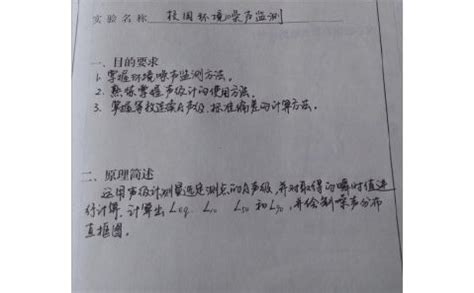 实验名称 校园环境噪声监测
一、目的要求
1. 掌握环境噪声监测方法。
2. 熟练掌握声级计的使用方法。
3. 掌握等效连续A声级、标准偏差的计算方法。
二、原理简述
运用声级计测量选定测点的A声级,并对取得的瞬时值进
行计算,计算出Leq、L10 L50 和L90,并绘制噪声分布
直框图。